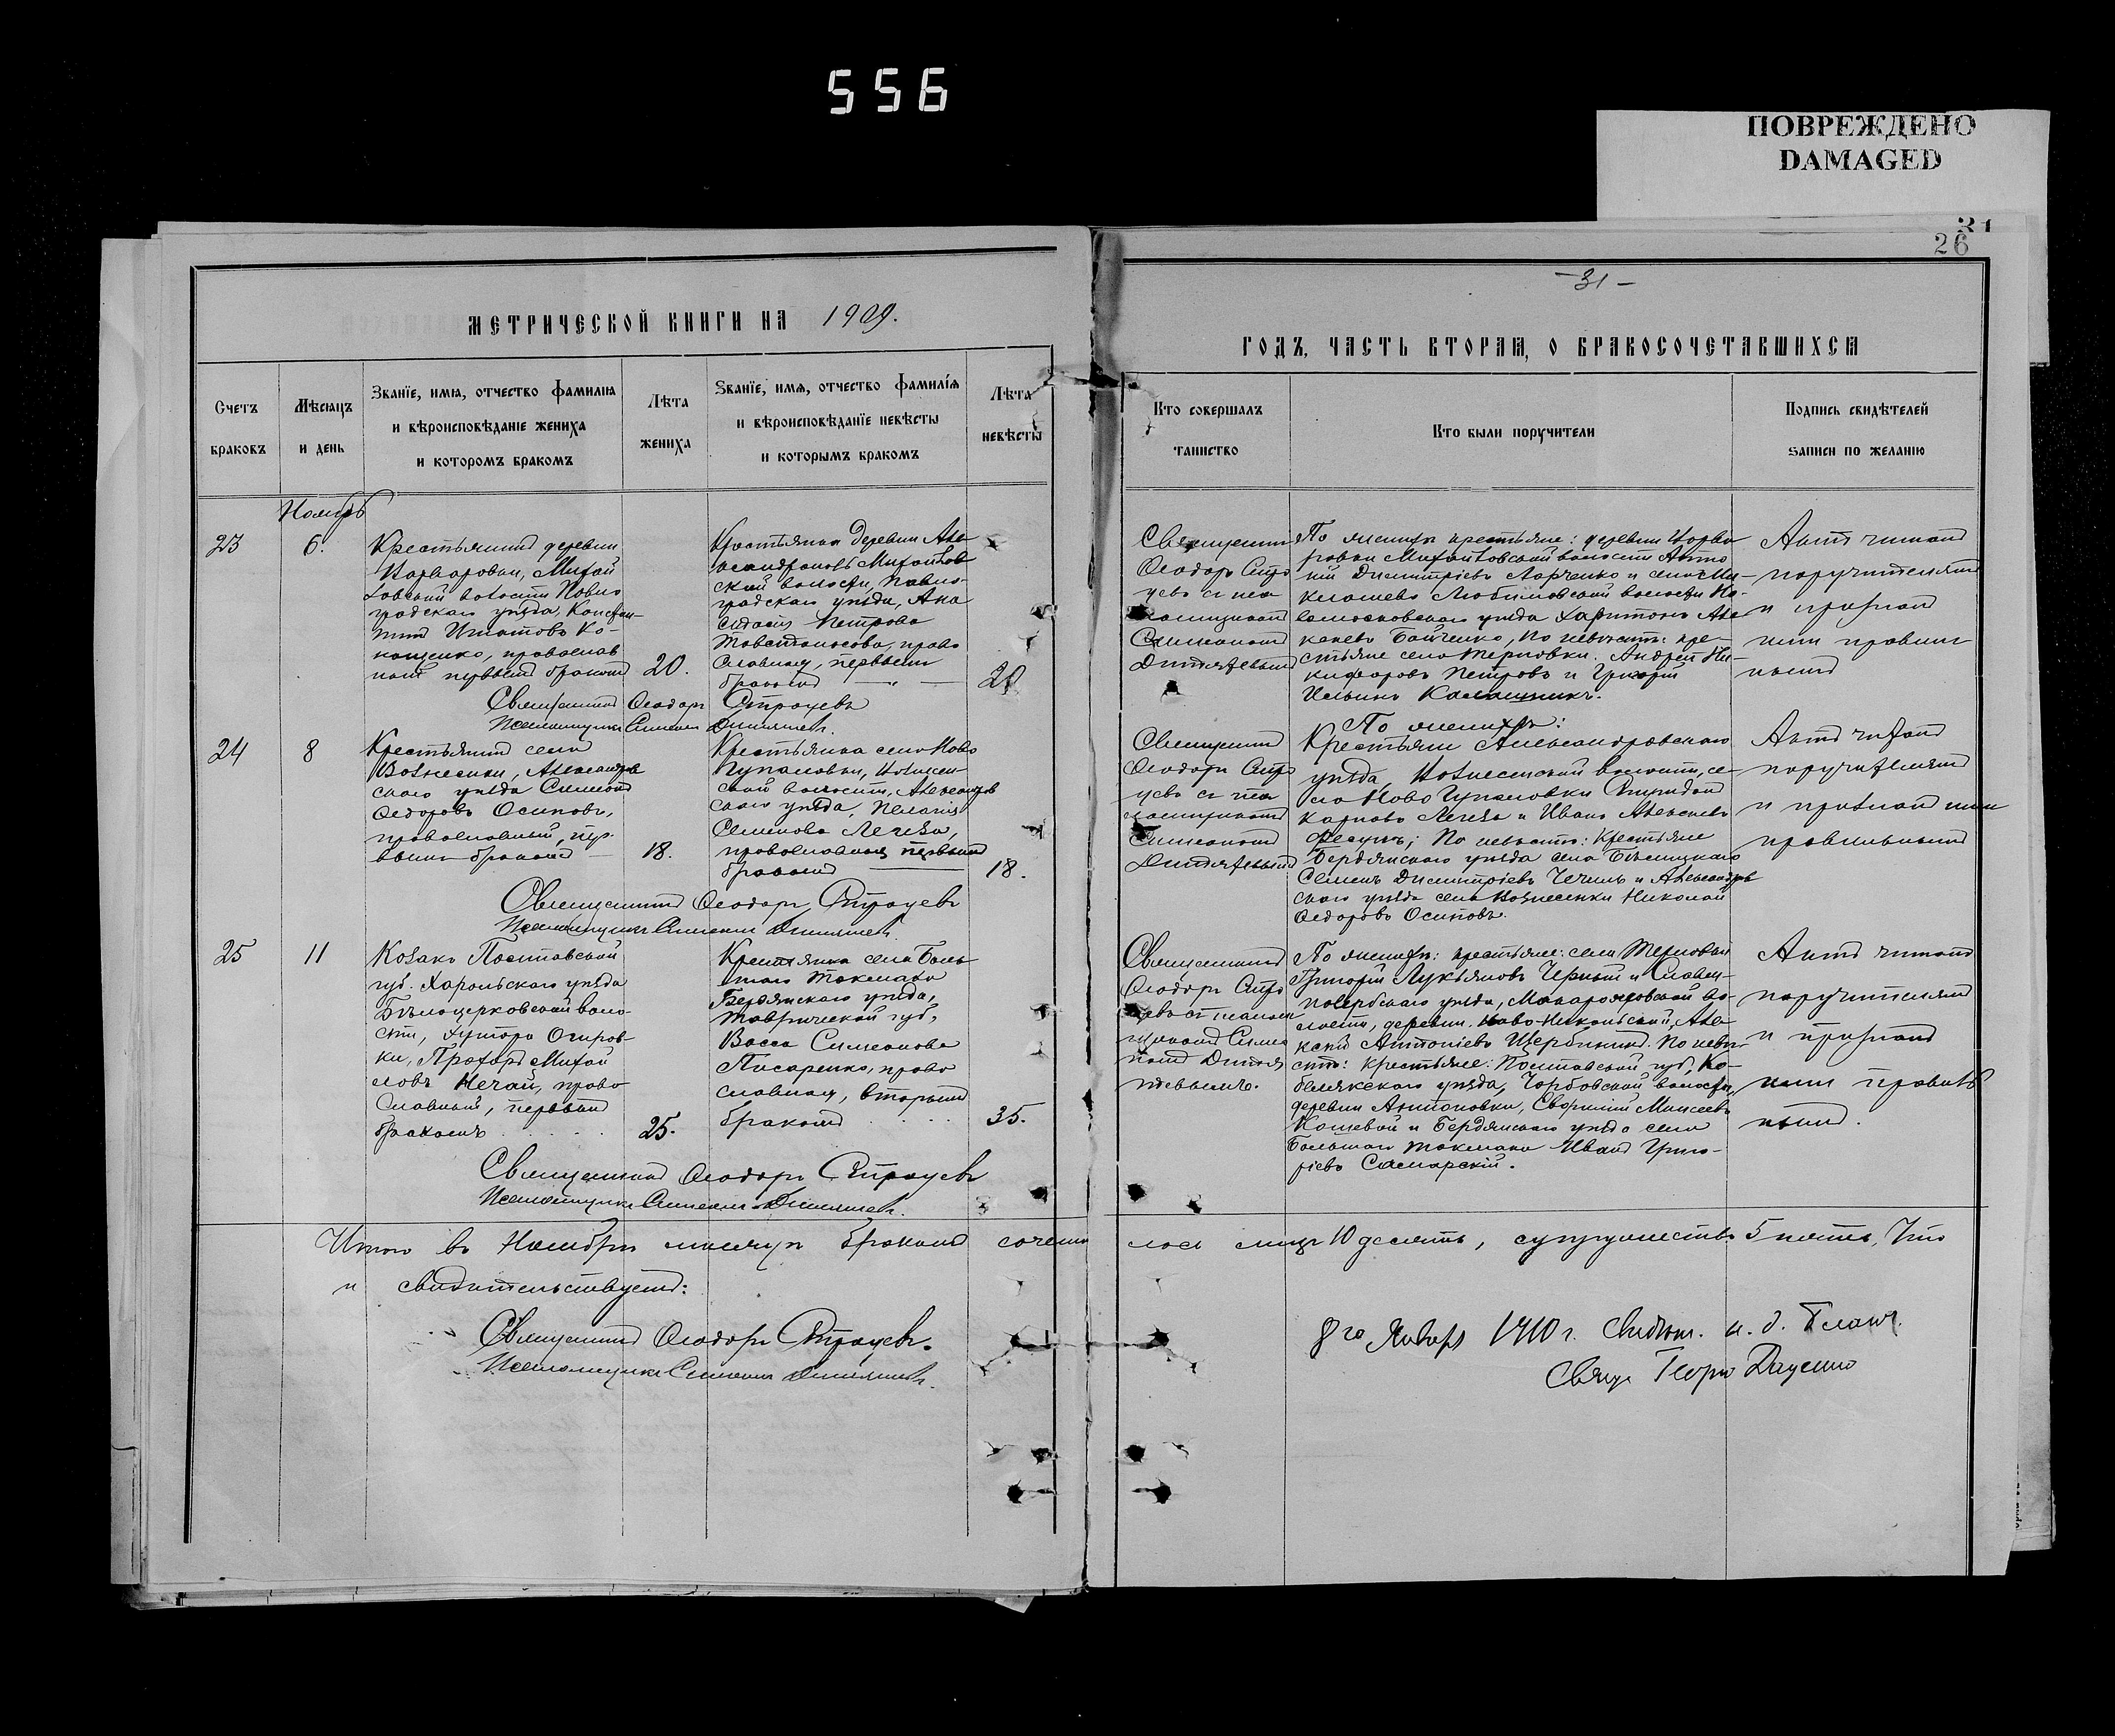 556
ПОВРЕЖДЕНО
DAMAGED
31
26
-31-
МЕТРИЧЕСКОЙ КНИГИ НА 1909.
ГОДЪ, ЧАСТЬ ВТОРАЯ, О БРАКОСОЧЕТАВШИХСЯ
Счетъ браковъ
Мѣсяцъ и день
Званіе, имя, отчество фамилія и вѣроисповѣданіе жениха и которомъ бракомъ
Лѣта жениха
Званіе, имя, отчество фамилія и вѣроисповѣданіе невѣсты и которымъ бракомъ
Лѣта невѣсты
Кто совершалъ таинство
Кто были поручители
Подпись свидѣтелей записи по желанію
Ноябрь
23
6.
Крестьянинъ деревни
Варваровки, Михай
ловской волости Павло
градскаго уѣзда, Констан
тинъ Игнатовъ Ко-
нощенко, православ
ный первымъ бракомъ
20.
Крестьянка деревни Але
ксандровкъ Михайлов
ской волости, Павло-
градскаго уѣзда, Ана
стасія Петрова
Товстоносова, право
славная, первымъ
бракомъ — " —
20
Священникъ
Ѳеодоръ Стра
цевъ съ пса
ломщикомъ
Симеономъ
Дитятевымъ
По женихѣ крестьяне: деревни Варва
ровки Михайловской волости Анто
ній Димитріевъ Ларченко и села Ми-
клашево Любимовской волости Но-
вомосковскаго уѣзда Харитонъ Але
ксѣевъ Бойченко, По невѣстѣ: кре-
стьяне села Терновки. Андрей Ни-
кифоровъ Петровъ и Григорій
Ильинъ Калашникъ.
Актъ читанъ
поручителямъ
и признанъ
ими правиль
нымъ
Священникъ Ѳеодоръ Страцевъ
Псаломщикъ Симеонъ Дитятевъ.
24
8
Крестьянинъ села
Вознесенки, Александров
скаго уѣзда Симеонъ
Ѳедоровъ Осиповъ,
православный, пер-
вымъ бракомъ —
18.
Крестьянка села Ново
Гупаловки, Вознесен-
ской волости, Александров
скаго уѣзда, Пелагія
Семенова Легеза,
православная первымъ
бракомъ ———
18.
Священникъ
Ѳеодоръ Стра
цевъ съ пса
ломщикомъ
Симеономъ
Дитятевымъ
По женихѣ:
Крестьяне Александровскаго
уѣзда, Вознесенской волости, се-
ла Ново Гупаловки Спиридонъ
Карповъ Легеза и Иванъ Алексѣевъ
Фесунъ; По невѣстѣ: Крестьяне
Бердянскаго уѣзда села Бѣлицкаго
Семенъ Димитріевъ Чечиль и Александров
скаго уѣзда села Вознесенки Николай
Ѳедоровъ Осиповъ.
Актъ читанъ
поручителямъ
и признанъ ими
правильнымъ
Священникъ Ѳеодоръ Страцевъ
Псаломщикъ Симеонъ Дитятевъ
25
11
Козакъ Полтавской
губ. Хорольскаго уѣзда
Бѣлоцерковской воло-
сти, хутора Огиров-
ки, Прохоръ Михай
ловъ Нечай, право
славный, первымъ
бракомъ . . . .
25.
Крестьянка села Боль
шаго Токмака
Бердянскаго уѣзда,
Таврической губ.,
Васса Симеонова
Писаренко, право
славная, вторымъ
бракомъ . . . .
35.
Священникъ
Ѳеодоръ Стра
цевъ съ псалом
щикомъ Симео
номъ Дитят
тевымъ.
По женихѣ: крестьяне: села Терновки
Григорій Лукьяновъ Черный и Славян-
посербскаго уѣзда, Макароярской во-
лости, деревни, Ново-Никольской, Але-
ксѣй Антоніевъ Щербининъ. По невѣ-
стѣ: Крестьяне: Полтавской губ, Ко-
белякскаго уѣзда, Чорбовской волости,
деревни Антоновки, Евфимій Моисеевъ
Кошевой и Бердянскаго уѣзда села
Большаго Токмака Иванъ Григо-
ріевъ Самарскій.
Актъ читанъ
поручителямъ
и признанъ
ими правиль
нымъ.
Священникъ Ѳеодоръ Страцевъ
Псаломщикъ Симеонъ Дитятевъ.
Итого въ Ноябрѣ мѣсяцѣ бракомъ сочета лось лицъ 10 десять, супружествъ 5 пять, Что
и свидѣтельствуемъ:
Священникъ Ѳеодоръ Страцевъ.
Псаломщикъ Симеонъ Дитятевъ.
8го Января 1910 г. Свидѣт. и. д. Благ.
Свящ Георгій